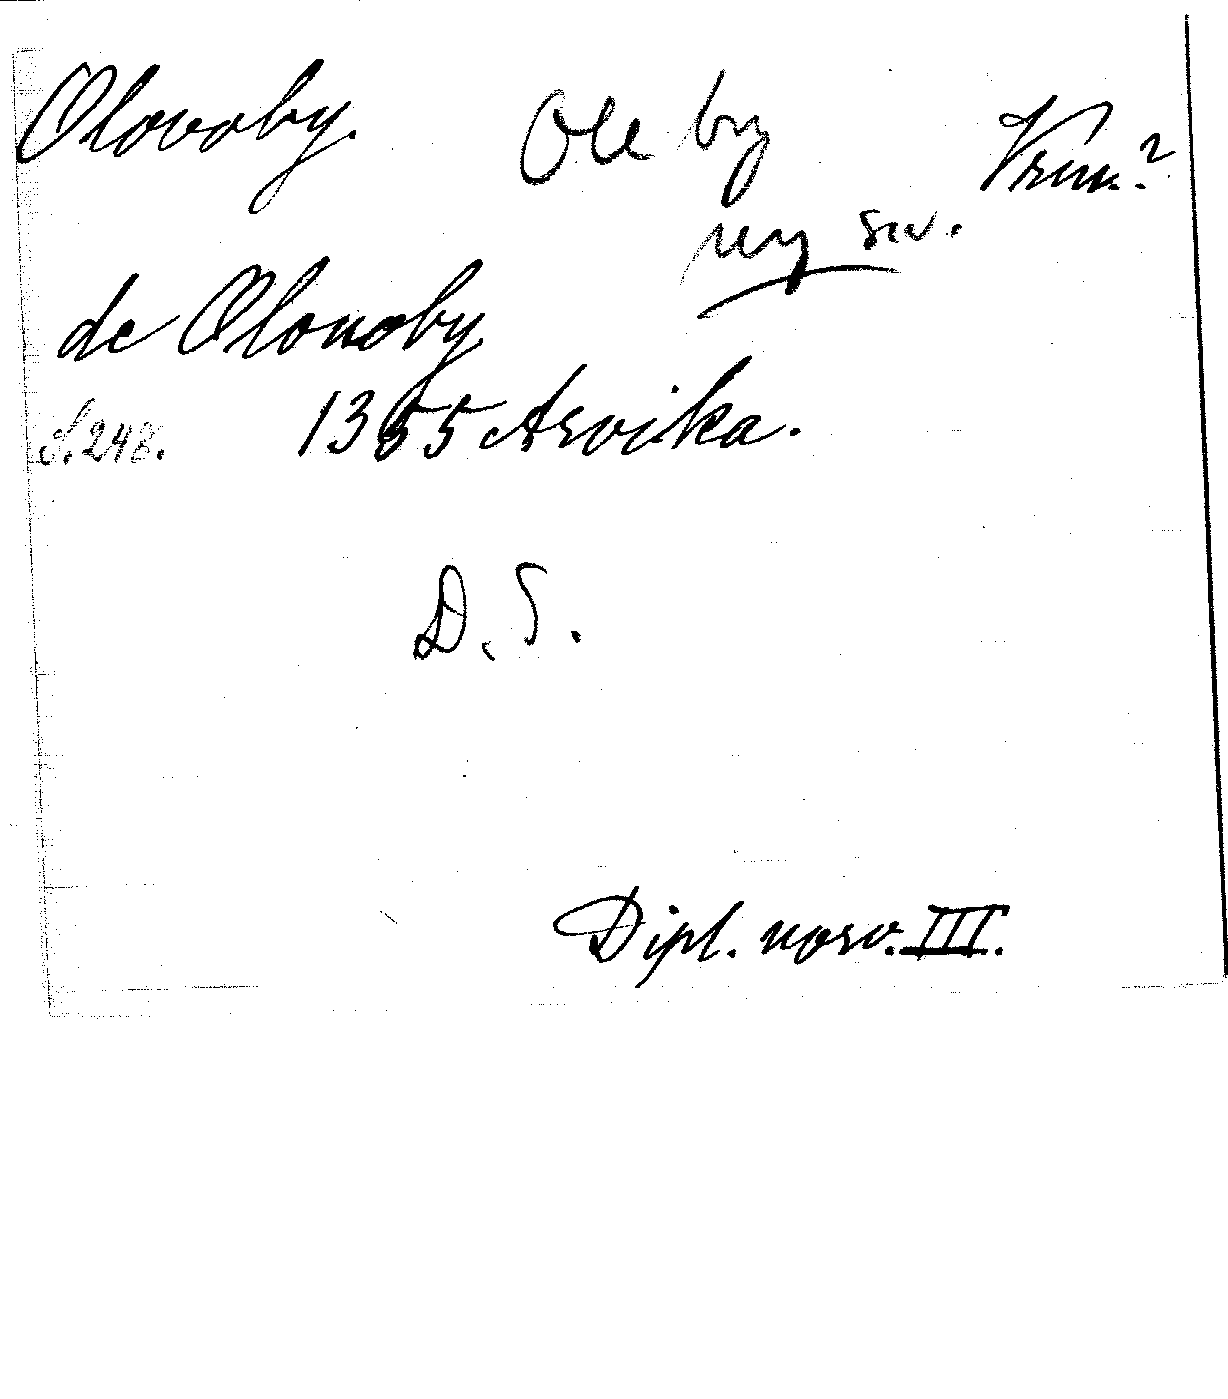 Olovoby. Oleby Vrm.?
ny sv.
de Olouoby
S. 248. 1355 Arvika.
D. S.
Dipl. norv. III.